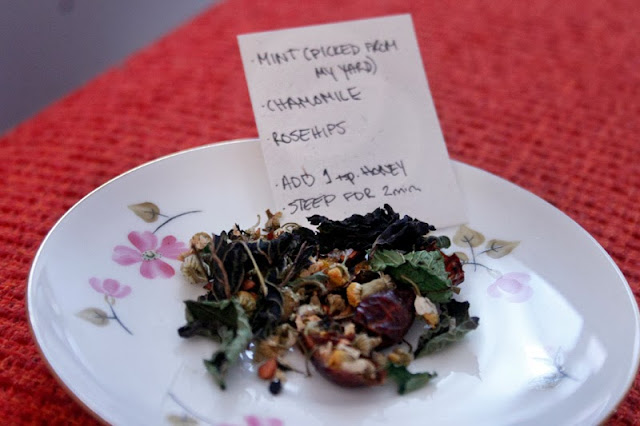 · MINT (PICKED FROM
MY YARD)
· CHAMOMILE
· ROSEHIPS
· ADD 1 tsp. HONEY
· STEEP FOR 2min